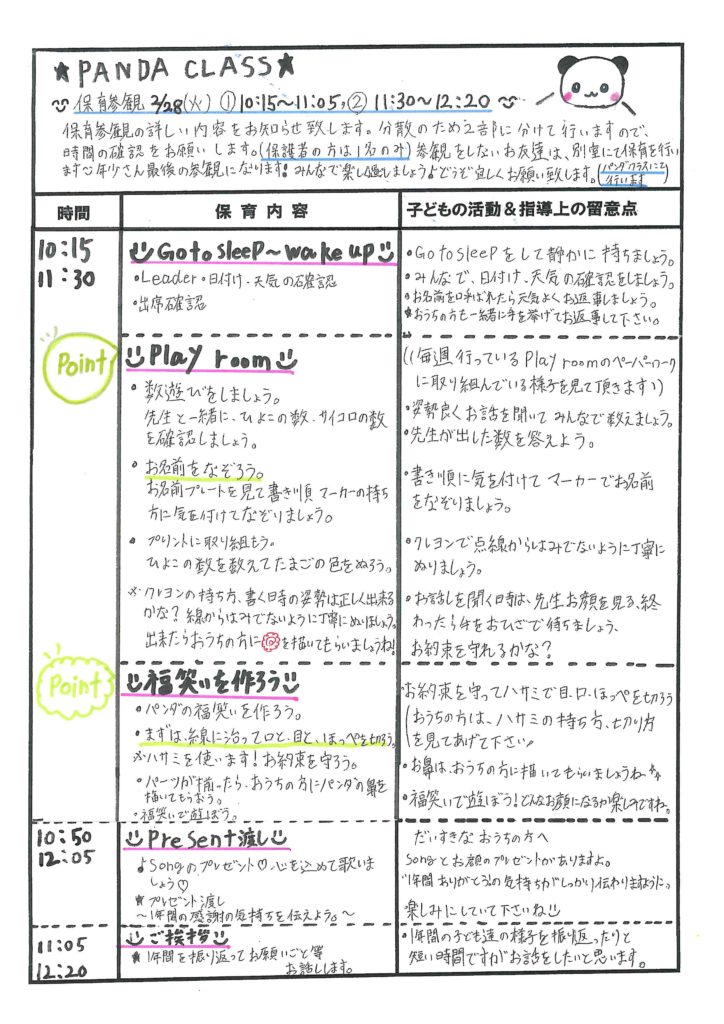 ★PANDA CLASS★
保育参観 2/28(火) ① 10:15〜11:05, ② 11:30〜12:20
保育参観の詳しい内容をお知らせ致します。分散のため2部に分けて行いますので、
時間の確認をお願いします。(保護者の方は1名のみ)参観をしないお友達は、別室にて保育を行い
ます 年少さん最後の参観になります! みんなで楽しく過しましょう♪どうぞ宜しくお願い致します。(パンダクラスにて
行います
時間
保育内容
子どもの活動&指導上の留意点
10:15
11:30
Go to sleeP〜wake up
・Leader・日付け・天気の確認
・出席確認
・Go to sleePをして静かに待ちましょう。
・みんなで、日付け、天気の確認をしましょう。
・お名前を呼ばれたら元気よくお返事しましょう。
★おうちの方も一緒に手を挙げてお返事して下さい。
Point
Play room
・数遊びをしましょう。
先生と一緒に、ひよこの数、サイコロの数
を確認しましょう。
・お名前をなぞろう。
お名前プレートを見て書き順 マーカーの持ち
方に気を付けてなぞりましょう。
・プリントに取り組もう。
ひよこの数を数えてたまごの色をぬろう。
※クレヨンの持ち方、書く時の姿勢は正しく出来る
かな?線からはみでないように丁寧にぬりましょう。
出来たらおうちの方に を描いてもらいましょうね!
((毎週行っているPlay roomのペーパーワーク
に取り組んでいる様子を見て頂きます))
・姿勢良くお話を聞いてみんなで数えましょう。
・先生が出した数を答えよう。
・書き順に気を付けて マーカーでお名前
をなぞりましょう。
・クレヨンで点線からはみでないように丁寧に
ぬりましょう。
・お話しを聞く時は、先生お顔を見る、終
わったら手をおひざで待ちましょう、
お約束を守れるかな?
Point
福笑いを作ろう
・パンダの福笑いを作ろう。
・まずは、線に沿って口と、目と、ほっぺを切ろう。
※ハサミを使います!お約束を守ろう。
・パーツが揃ったら、おうちの方にパンダの鼻を
描いてもらおう。
・福笑いで遊ぼう。
お約束を守ってハサミで目、口、ほっぺを切ろう
(おうちの方は、ハサミの持ち方、切り方
を見てあげて下さい
・お鼻は、おうちの方に描いてもらいましょうね
・福笑いで遊ぼう!どんなお顔になるか楽しみですね。
10:50
12:05
Present渡し
♪Songのプレゼント♡心を込めて歌いま
しょう♡
★プレゼント渡し
〜1年間の感謝の気持ちを伝えよう。〜
だいすきな おうちの方へ
Songとお顔のプレゼントがありますよ。
"1年間ありがとう"の気持ちがしっかり伝わりますように。
楽しみにしていて下さいね
11:05
12:20
ご挨拶
★1年間を振り返ってお願いごと等
お話しします。
・1年間の子ども達の様子を振り返ったりと
短い時間ですがお話をしたいと思います。